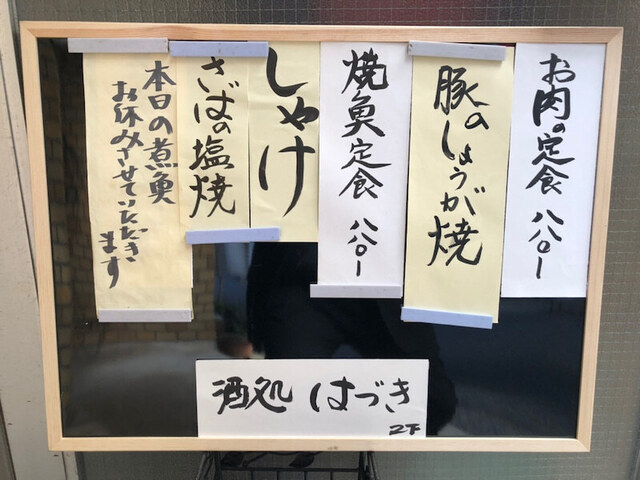 お肉の定食 八八〇ー
豚のしょうが焼
焼魚定食 八八〇ー
しゃけ
さばの塩焼
本日の煮魚
お休みさせていただき
ます
酒処 はづき
2F